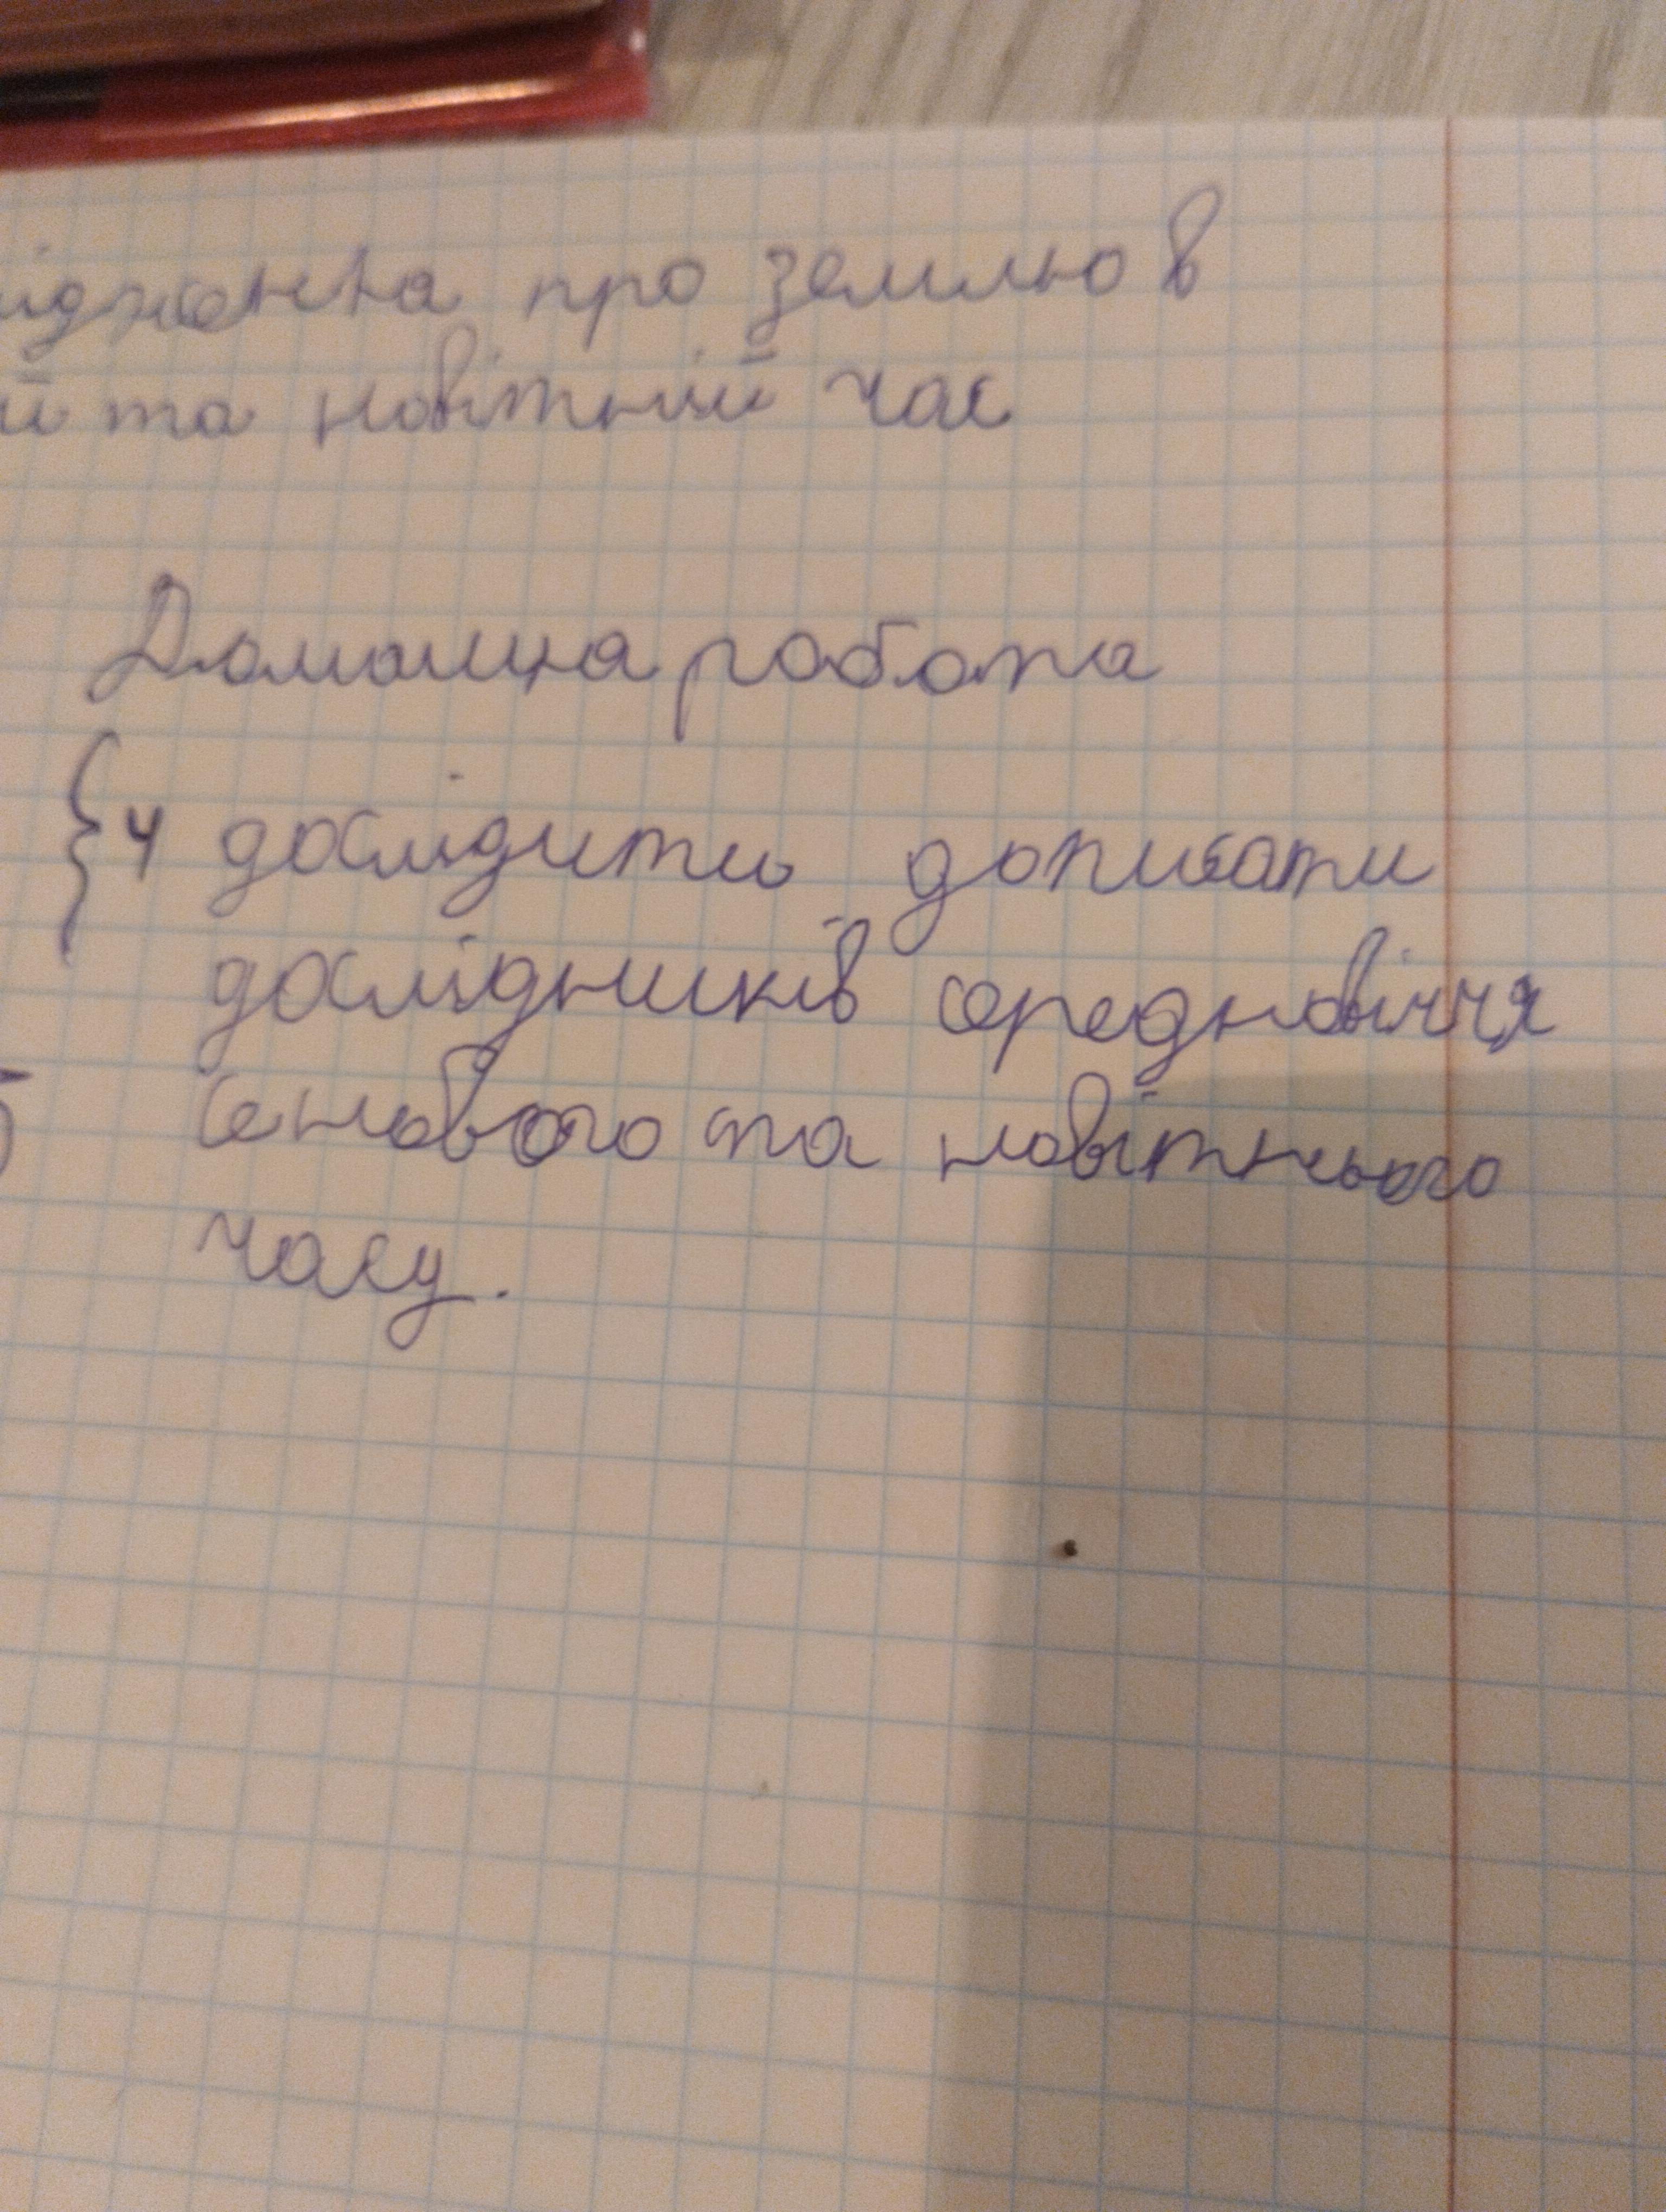 про землю в
та новітній час
Домашня робота
{4 дослідити дописати
дослідників середновіччя
нового та новітнього
часу.